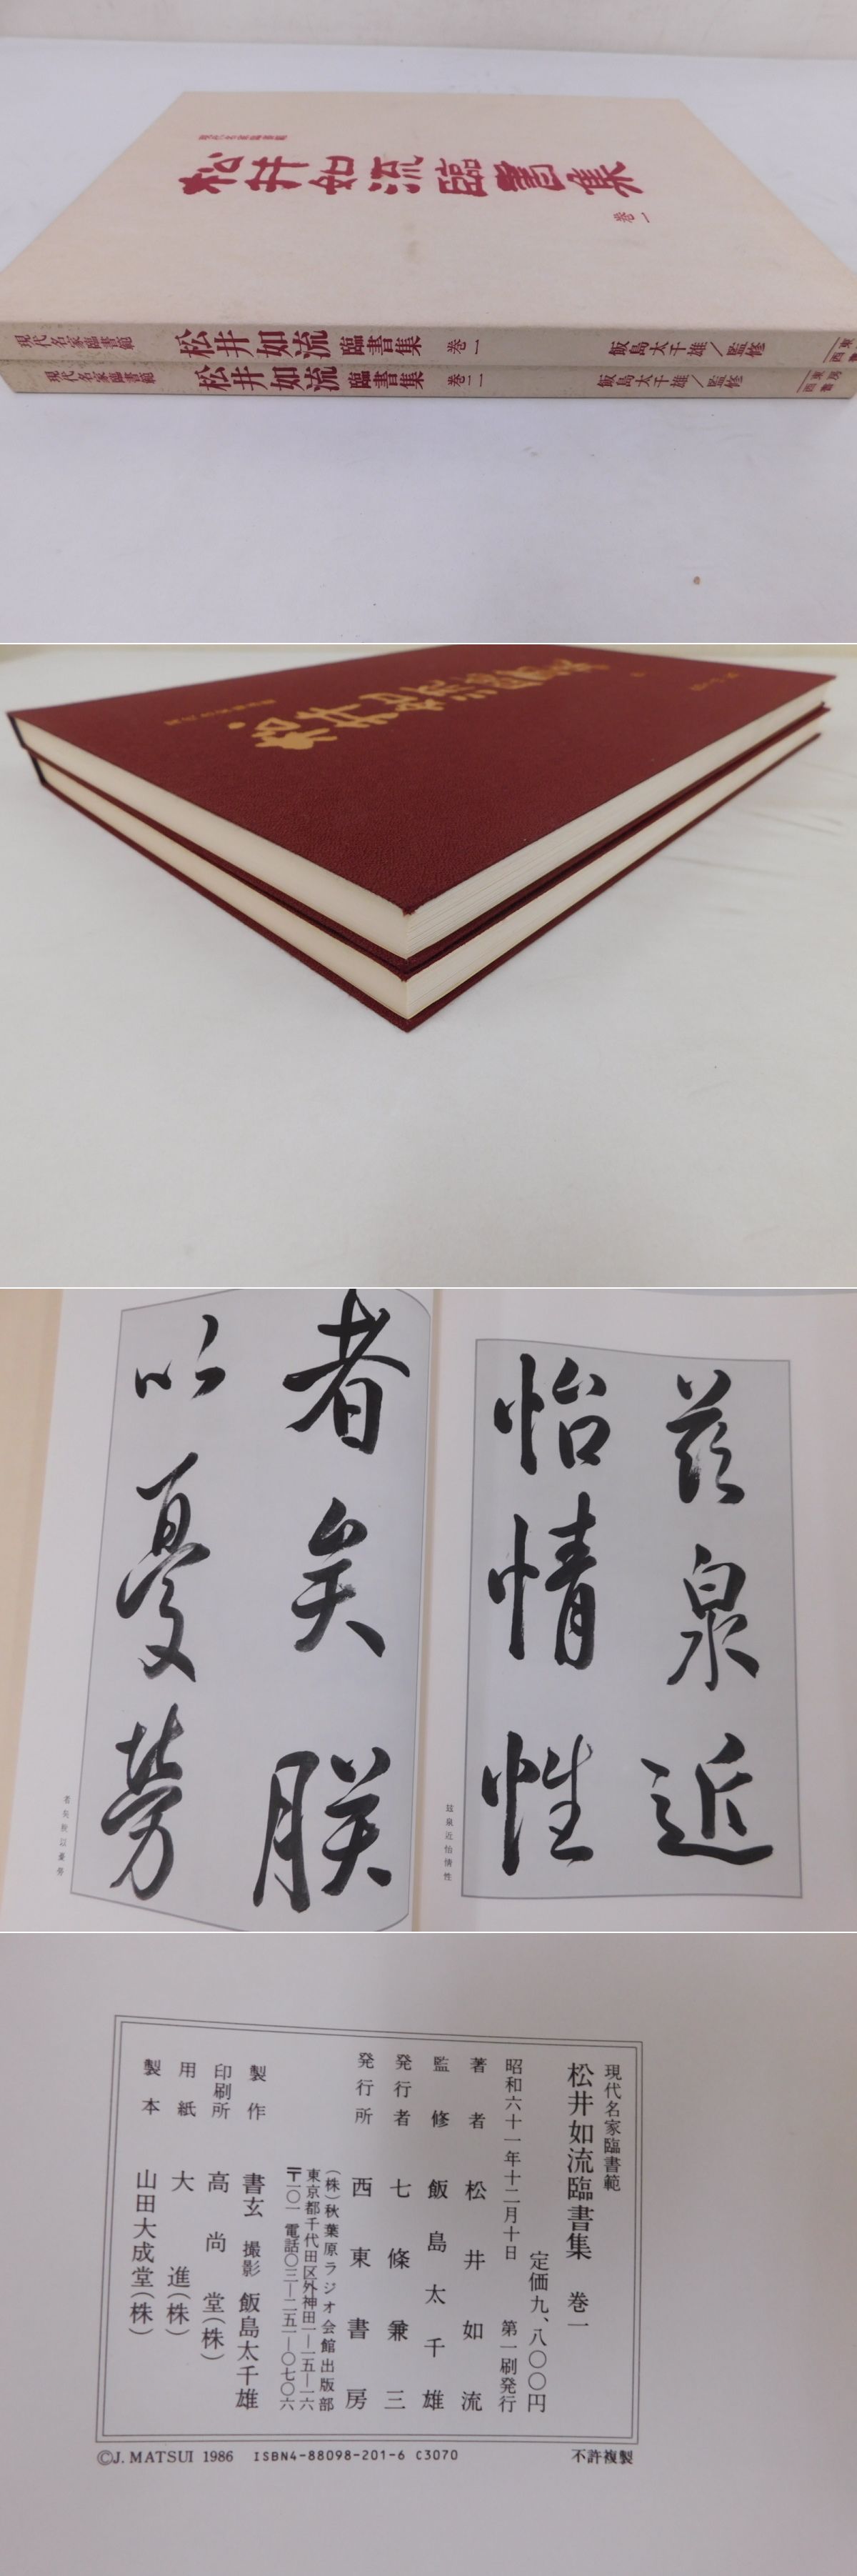 現代名家臨書範
松井如流臨書集
巻一
現代名家臨書範 松井如流 臨書集 巻一 飯島太千雄/監修
現代名家臨書範 松井如流 臨書集 巻二 飯島太千雄/監修 西東書房
茲泉近
怡情性
茲泉近怡情性
者矣朕
以憂劳
者矣朕以憂労
現代名家臨書範
松井如流臨書集 巻一
定価九、八〇〇円
昭和六十一年十二月十日 第一刷発行
著者 松井如流
監修 飯島太千雄
発行者 七條兼三
発行所 西東書房
(株)秋葉原ラジオ会館出版部
東京都千代田区外神田一―一五―一六
〒一〇一 電話〇三―二五一―〇七〇六
製作 書玄 撮影 飯島太千雄
印刷所 高尚堂(株)
用紙 大進(株)
製本 山田大成堂(株)
©J. MATSUI 1986 ISBN4-88098-201-6 C3070 不許複製